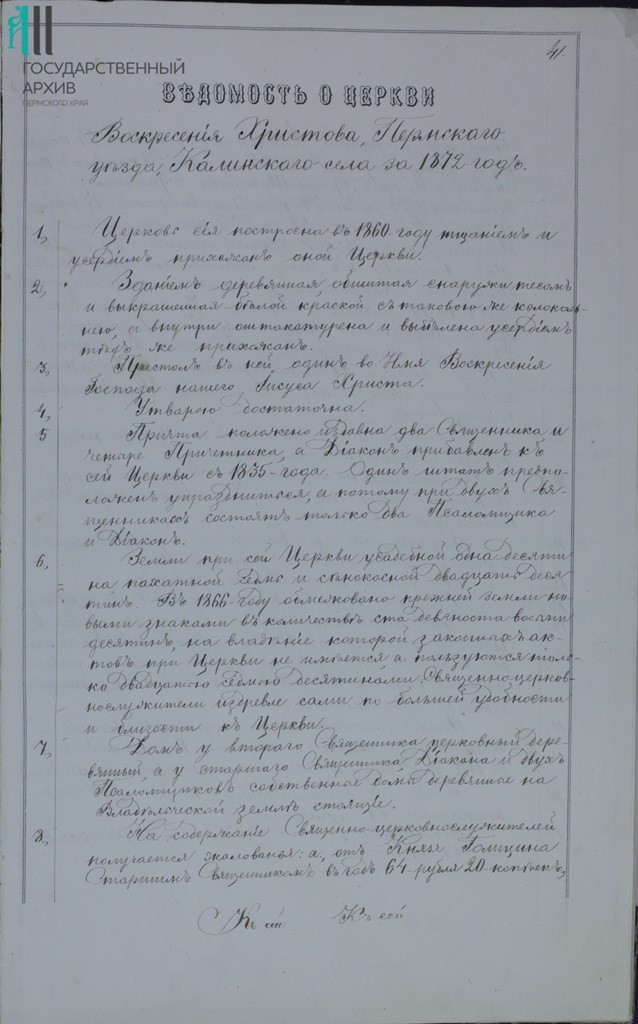 41.
ГОСУДАРСТВЕННЫЙ
АРХИВ
ПЕРМСКОГО КРАЯ
ВѢДОМОСТЬ О ЦЕРКВИ
Воскресенія Христова, Пермскаго
уѣзда, Калинскаго села за 1872 годъ.
1, Церковь сія построена въ 1860 году тщаніемъ и
усердіемъ прихожанъ оной Церкви.
2, Зданіемъ деревянная обшитая снаружи тесомъ
и выкрашенная бѣлой краской съ таковою же коло­коль-
нею, а внутри оштакатурена и выбѣлена усердіемъ
тѣхъ же прихожанъ.
3, Престолъ въ ней одинъ во Имя Воскресенія
Господа нашего Іисуса Христа.
4, Утварью достаточна.
5 Причта положено издавна два Священника и
четыре Причетника, а Діаконъ прибавленъ къ
сей Церкви съ 1835 года. Одинъ штатъ предпо-
ложенъ упраздниться, а потому при двухъ Свя-
щенникахъ состоятъ только два Псаломщика
и Діаконъ.
6, Земли при сей Церкви усадебной одна десяти-
на пахатной семь и сѣнокосной двадцать деся-
тинъ. Въ 1866 году обмежевано прежней земли но-
выми знаками въ количествѣ ста девяноста восьми
десятинъ, на владѣніе которой законныхъ ак-
товъ при Церкви не имѣется а пользуются толь-
ко двадцатью семью десятинами Священно-церков-
нослужители издревле сами по большей удобности
и близости къ Церкви.
7, Домъ у втораго Священника церковный дере-
вянный, а у старшаго Священника, Діакона и двухъ
Псаломщиковъ собственные домы деревянные на
Владѣльческой землѣ стоящіе.
8, На содержаніе Священно-церковнослужителей
получается жалованья: а, отъ Князя Голицына
Старшимъ Священникомъ въ годъ 64 рубля 20 копѣекъ,
Къ сей Къ сей